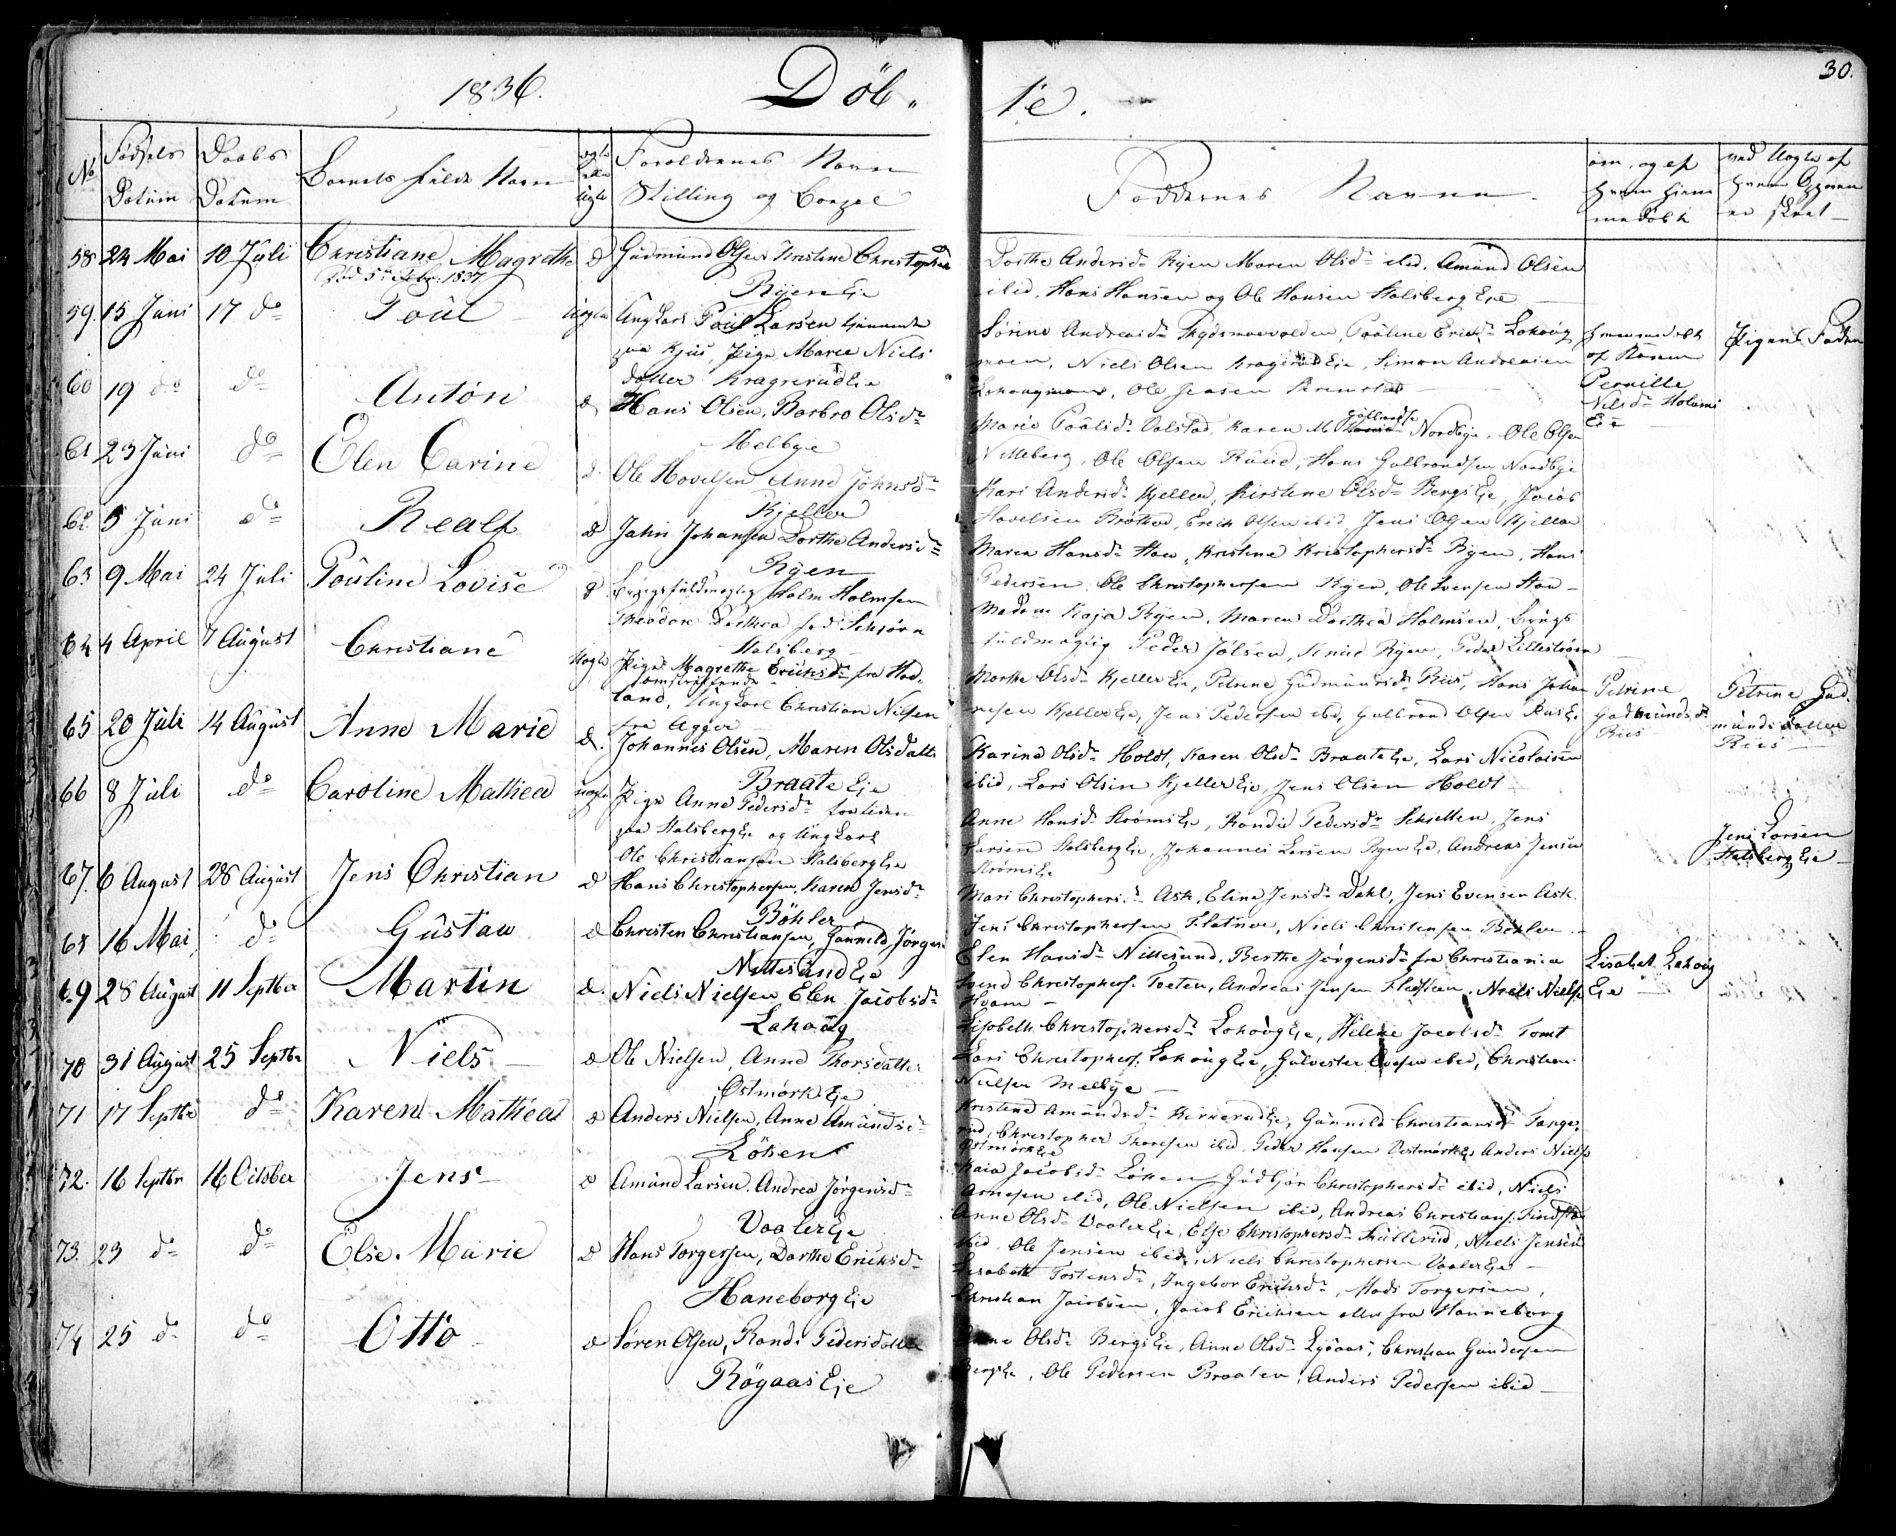 1836. Döb-
te.
30.
No
Fødsels Datum
Daabs Datum
Barnets fulde Navn
Forældrenes Navn
Stilling og Bopæl
Faddernes Navne
om, og af
hvem hjem
medöbt
58 24 Mai 10 Juli Christiane Magrethe
Gudmund Olsen Kirstine Christophersd
Ryen Eie
Dorthe Andersd. Ryen Maren Olsd. ibid, Amund Olsen
ibid, Hans Hansen og Ole Hansen Stalsberg Eie
59. 15 Juni 17 do Poul
Ungkarl Poul Larsen tjenende
paa Kjus, Pige Maree Niels
datter Kragerud Eie
Niels Olsen Kragerud Eie, Simon Andreasen
Ole Jensen
Pernille
Nilsd. Holums
Eie
Pigens Fader
60 19 do do Anton
Hans Olsen, Barbro Olsd.
Melbye
Marie Poulsd. Valstad, Karen Nordbye, Ole Olsen
Nitteberg, Ole Olsen Ruud, Hans Gulbrandsen Nordbye
61 23 Juni do Elen Carine
Ole Hovelsen Anne Johnsd.
Kjeller
Kari Andersd. Kjeller, Kirstine Olsd. Bergs Eie, Jacob
Hovelsen Bråthe, Erik Olsen ibid, Jens Olsen Kjeller
62. 5 Juni do Realf
Jahn Johansen Dorthe Andersd.
Ryen
Maren Hansd. Hou, Kristine Kristophersd. Ryen, Hans
Pedersen, Ole Christophersen Ryen, Ole Svensen Hou
63 9 Mai 24 Juli Pouline Lovise
Holm Holmsen
Theodore Dorthea fød Schjørn
Stalsberg
Madam Kaja Ryen, Maren Dorthea Holmsen, Brugs
fuldmægtig Peder Jølsen, Knud Ryen, Peder Lillestrøm
64 4 April 7 August Christiane
Pige Magrethe Eriksd. fra Had
omstreifende
land, Ungkarl Christian Nilsen
fra Agger
Marthe Olsd. Kjeller Eie, Petrine Gudmunsd. Riis, Hans Johan
nesen Kjeller Eie, Jens Pedersen ibid, Gulbrand Olsen Riis Eie
Petrine
Gudmundsd.
Riis
Petrine Gud
mundsdatter
Riis
65 20 Juli 14 August Anne Marie
Johannes Olsen, Maren Olsdatter
Braate Eie
Karine Olsd. Holdt, Karen Olsd. Braate Eie, Lars Nicolaisen
ibid, Lars Olsen Kjeller Eie, Jens Olsen Holdt
66 8 Juli do Caroline Mathea
Pige Anne Pedersd. for tiden
paa Stalsberg Eie og Ungkarl
Ole Christiansen Stalsberg Eie
Anne Hansd. Strøms Eie, Randie Pedersd. Schjetten, Jens
Larsen Stalsberg Eie, Johannes Larsen Ryen Eie, Andreas Jensen
Strøms Eie
Jens Larsen
Stalsberg Eie
67. 6 August 28 August Jens Christian
Hans Christophersen, Karen Jensd.
Böhler
Mari Christophersd. Ask, Eline Jensd. Dahl, Jens Evensen Ask
Jens Christophersen Flatner, Niels Christensen Böhler
68 16 Mai do Gustav
Christen Christiansen, Gunnild Jörgen
Nittesund Eie
Elen Hansd. Nittesund, Berthe Jørgensd. fra Christiania
Svend Christophers. Toeten, Andreas Jensen, Niels Niels.
Hvam
Lisabet Lahaug
Eie
69 28 August 11 Septber Martin
Niels Nielsen Elen Jacobsd.
Lahaug
Lisabeth Christophersd. Lahaug Eie, Helene Jacobsd. Tomt
Lars Christophers. Lahaug Eie, Gulvester Ovesen ibid, Christian
Nielsen Melbye
70 31 August 25 Septbr Niels
Ole Nielsen, Anne Thorsdatter
Östmörk Eie
Kristine Amundsd. Kirkerud Eie, Gunnild Christiansd. Fanger
rud, Christopher Thoresen ibid, Peder Hansen Vestmörk Eie Anders Niels.
Östmörk Eie
71 17 Septbr do Karen Mathea
Anders Nielsen, Anne Amundsd.
Löken
Kaia Jacobsd. Löken Gudbjör Christophersd. ibid, Niels
Arnesen ibid, Ole Nielsen ibid, Andreas Christians.
72. 16 Septbr 16 October Jens
Amund Larsen, Andrea Jörgensd.
Vaaler Eie
Anne Olsd. Vaaler Eie, Else Christophersd., Niels Jensen
ibid, Ole Jensen ibid, Niels Christophersen Vaaler Eie
73. 23 do do Else Marie
Hans Torgersen, Dorthe Eriksd.
Haneborg Eie
Lisabeth Tostensd., Ingebor Eriksd., Mads Torgersen,
Christian Jacobsen, Jacob Eriksen alle fra Hanneborg
74 25 do do Otto
Søren Olsen, Randi Pedersdatter
Rögaas Eie
Olsd. Bergs Eie, Anne Olsd., Christian Gundersen
Bergs Eie, Ole Pedersen Braaten, Anders Pedersen ibid